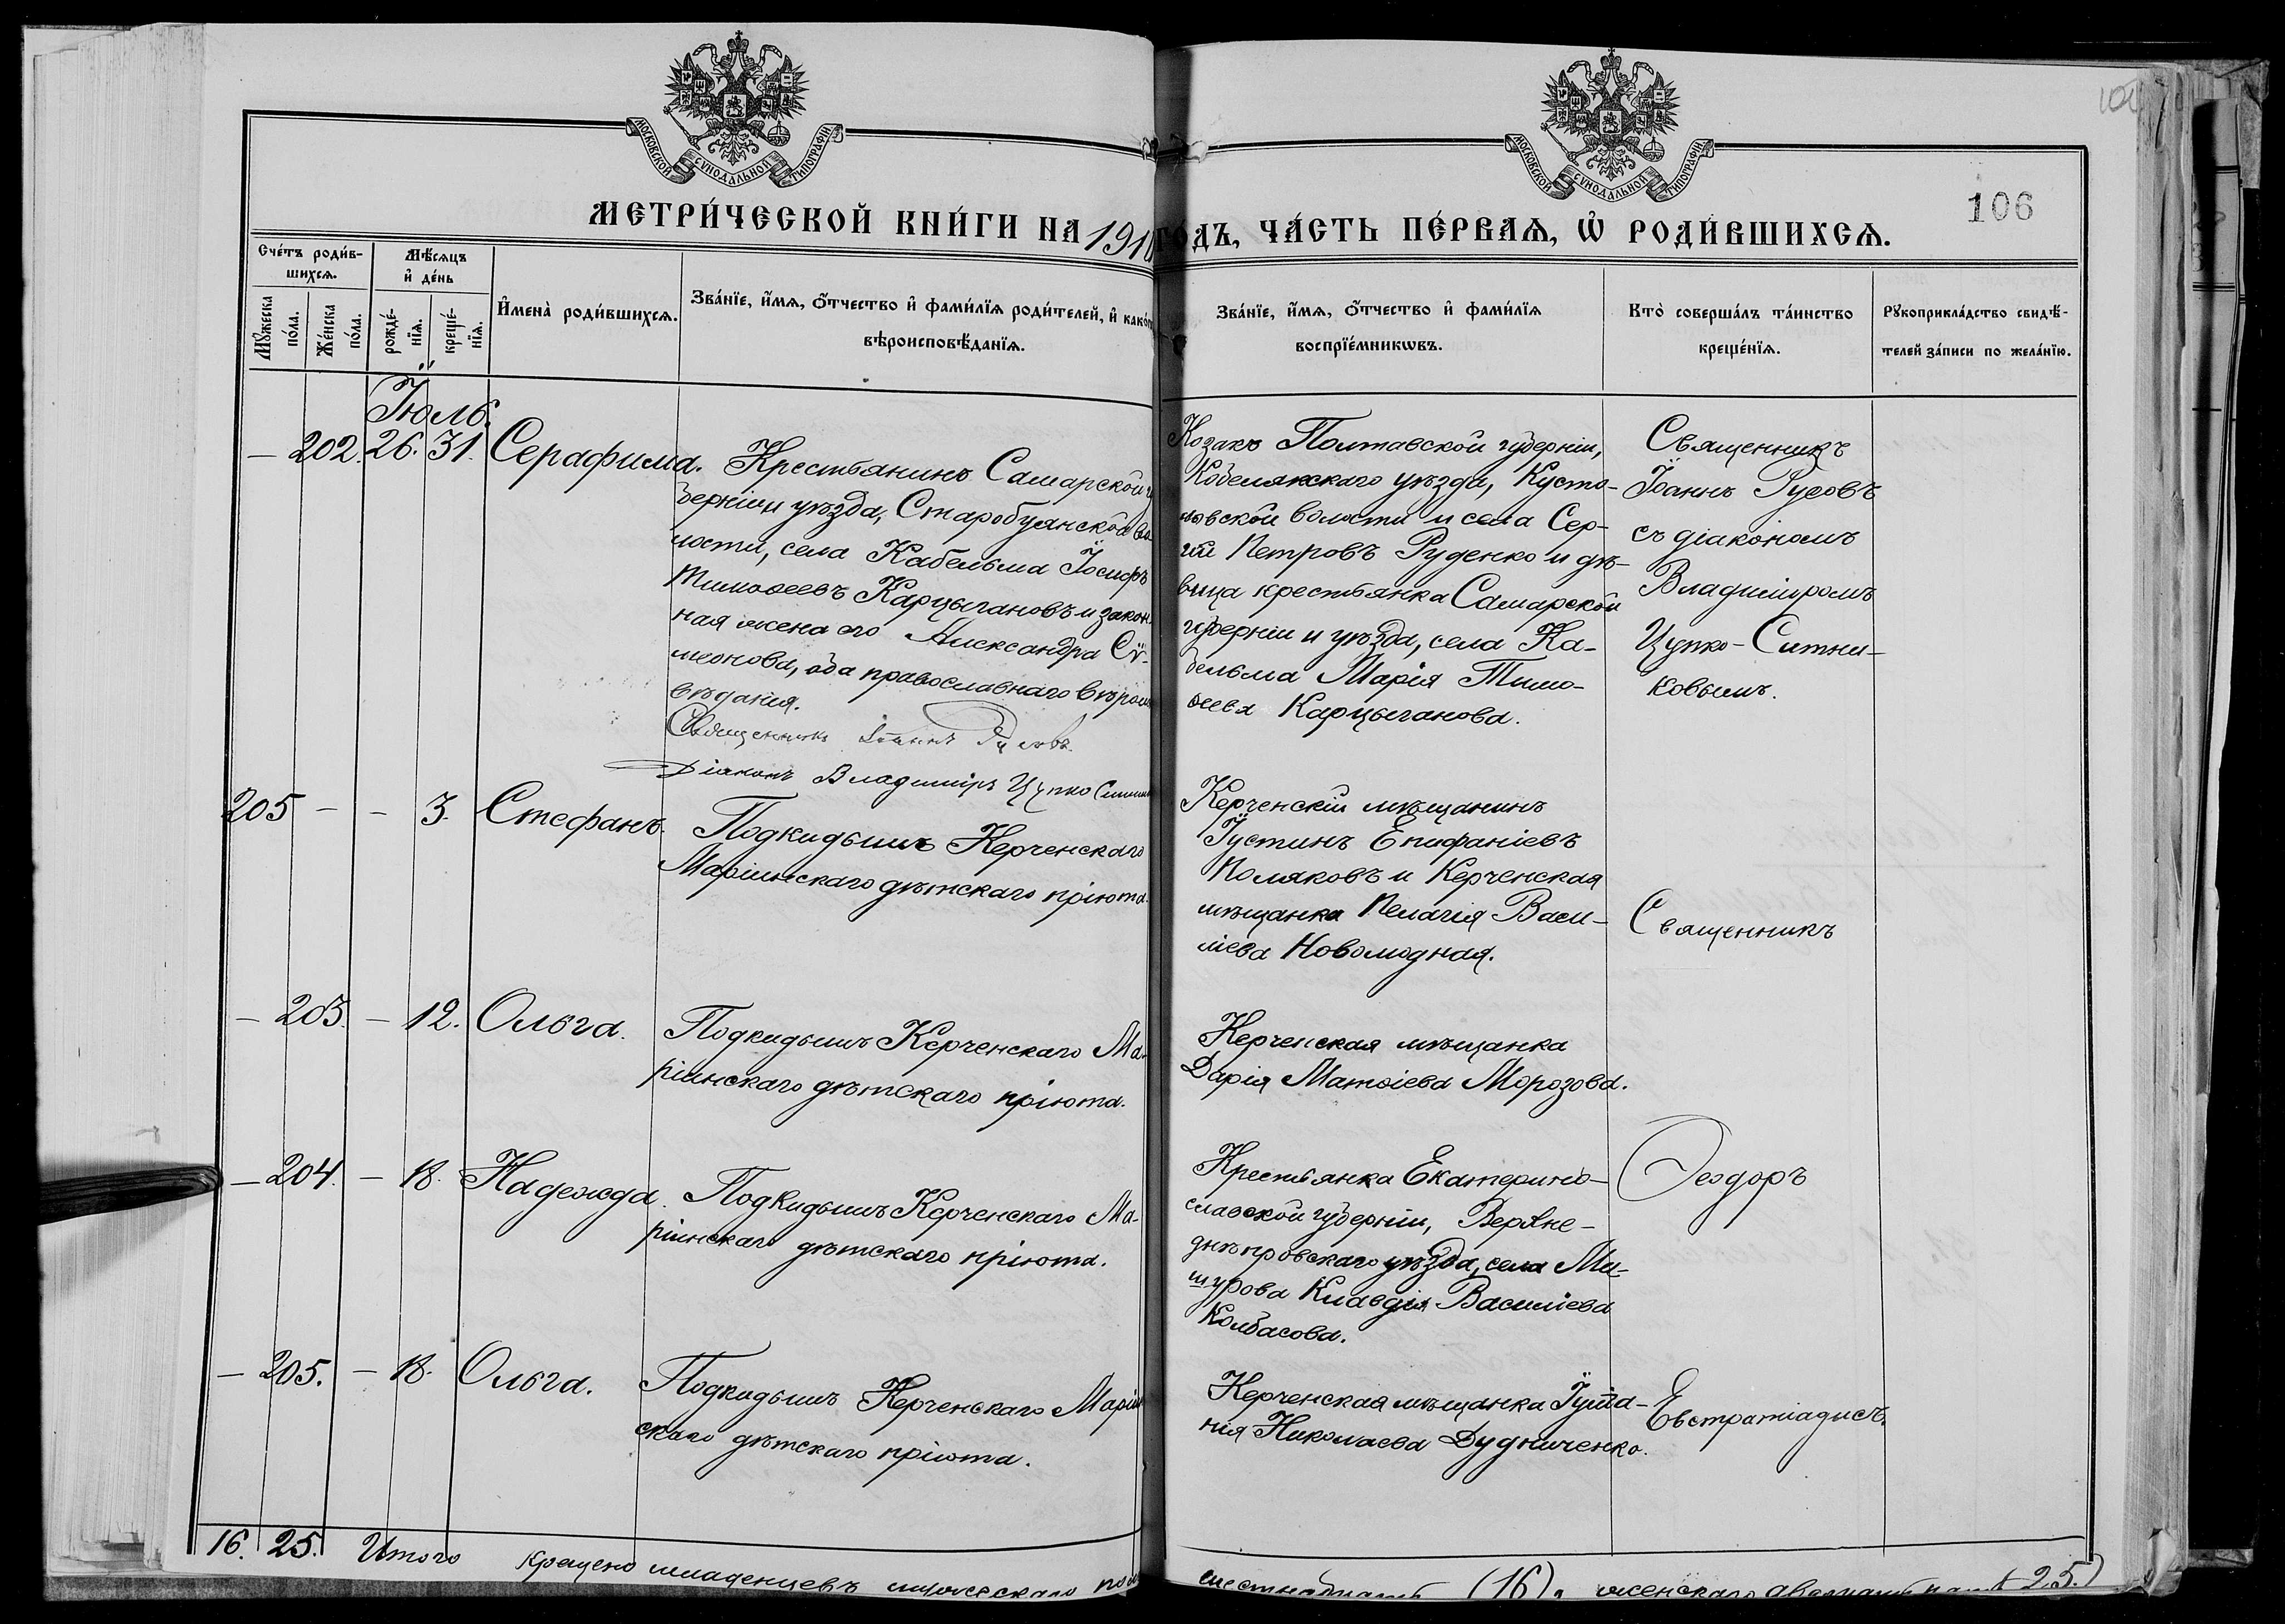 МОСКОВСКОЙ СѴНОДАЛЬНОЙ ТИПОГРАФІИ
МОСКОВСКОЙ СѴНОДАЛЬНОЙ ТИПОГРАФІИ
106
МЕТРИ́ЧЕСКОЙ КНИ́ГИ НА 1910 ГОДЪ, ЧА́СТЬ ПЕ́РВАѦ, Ѡ РОДИ́ВШИХСѦ.
Сче́тъ роди́в-
шихсѧ.
Мꙋжеска по́ла.
Же́нска по́ла.
Мѣ́сѧцъ
и҆ де́нь
рожде́-
нїѧ.
креще́-
нїѧ.
И҆мена̀ роди́вшихсѧ.
Зва́нїе, и҆́мѧ, ѻ҆́тчество и҆ фами́лїѧ роди́телей, и҆ како́г
вѣроисповѣ́данїѧ.
Зва́нїе, и҆́мѧ, ѻ҆́тчество и҆ фами́лїѧ
воспрїе́мникѡвъ.
Кто̀ соверша́лъ та́инство
креще́нїѧ.
Рꙋкоприкла́дство свидѣ́-
телей за́писи по жела́нїю.
Іюль.
— 202. 26. 31. Серафима.
Крестьянинъ Самарской гу
берніи и уѣзда, Старобуянской во
лости, села Кабельма Іосифъ
Тимоѳеевъ Карцыгановъ и закон
ная жена его Александра Сѵ-
меонова, оба православнаго вѣроис
вѣданія.
Священникъ Іоаннъ Русовъ.
Діаконъ Владиміръ Цупко Ситник
Козакъ Полтавской губерніи,
Кобелякскаго уѣзда, Кусто-
ловской волости и села Сер-
гій Петровъ Руденко и дѣ-
вица крестьянка Самарской
губерніи и уѣзда, села Ка-
бельма Марія Тимо-
ѳеева Карцыганова.
Священникъ
Іоаннъ Русовъ
съ діакономъ
Владиміромъ
Цупко-Ситни-
ковымъ.
205 — — 3. Стефанъ.
Подкидышъ Керченскаго
Маріинскаго дѣтскаго пріюта.
Керченскій мѣщанинъ
Іустинъ Епифаніевъ
Поляковъ и Керченская
мѣщанка Пелагія Васи-
ліева Новомодная.
Священникъ
— 203. — 12. Ольга.
Подкидышъ Керченскаго Ма-
ріинскаго дѣтскаго пріюта.
Керченская мѣщанка
Дарія Матѳіева Морозова.
— 204. — 18. Надежда.
Подкидышъ Керченскаго Ма-
ріинскаго дѣтскаго пріюта.
Крестьянка Екатерино-
славской губерніи, Верхне-
днѣпровскаго уѣзда, села Ми-
шурова Клавдія Василіева
Колбасова.
Ѳеодоръ
— 205. — 18. Ольга.
Подкидышъ Керченскаго Маріин
скаго дѣтскаго пріюта.
Керченская мѣщанка
нія Николаева Дудниченко.
Евстратіадисъ.
16. 25. Итого крещено младенцевъ мужескаго пола
шестнадцать (16), женскаго двадцать пять 25.)